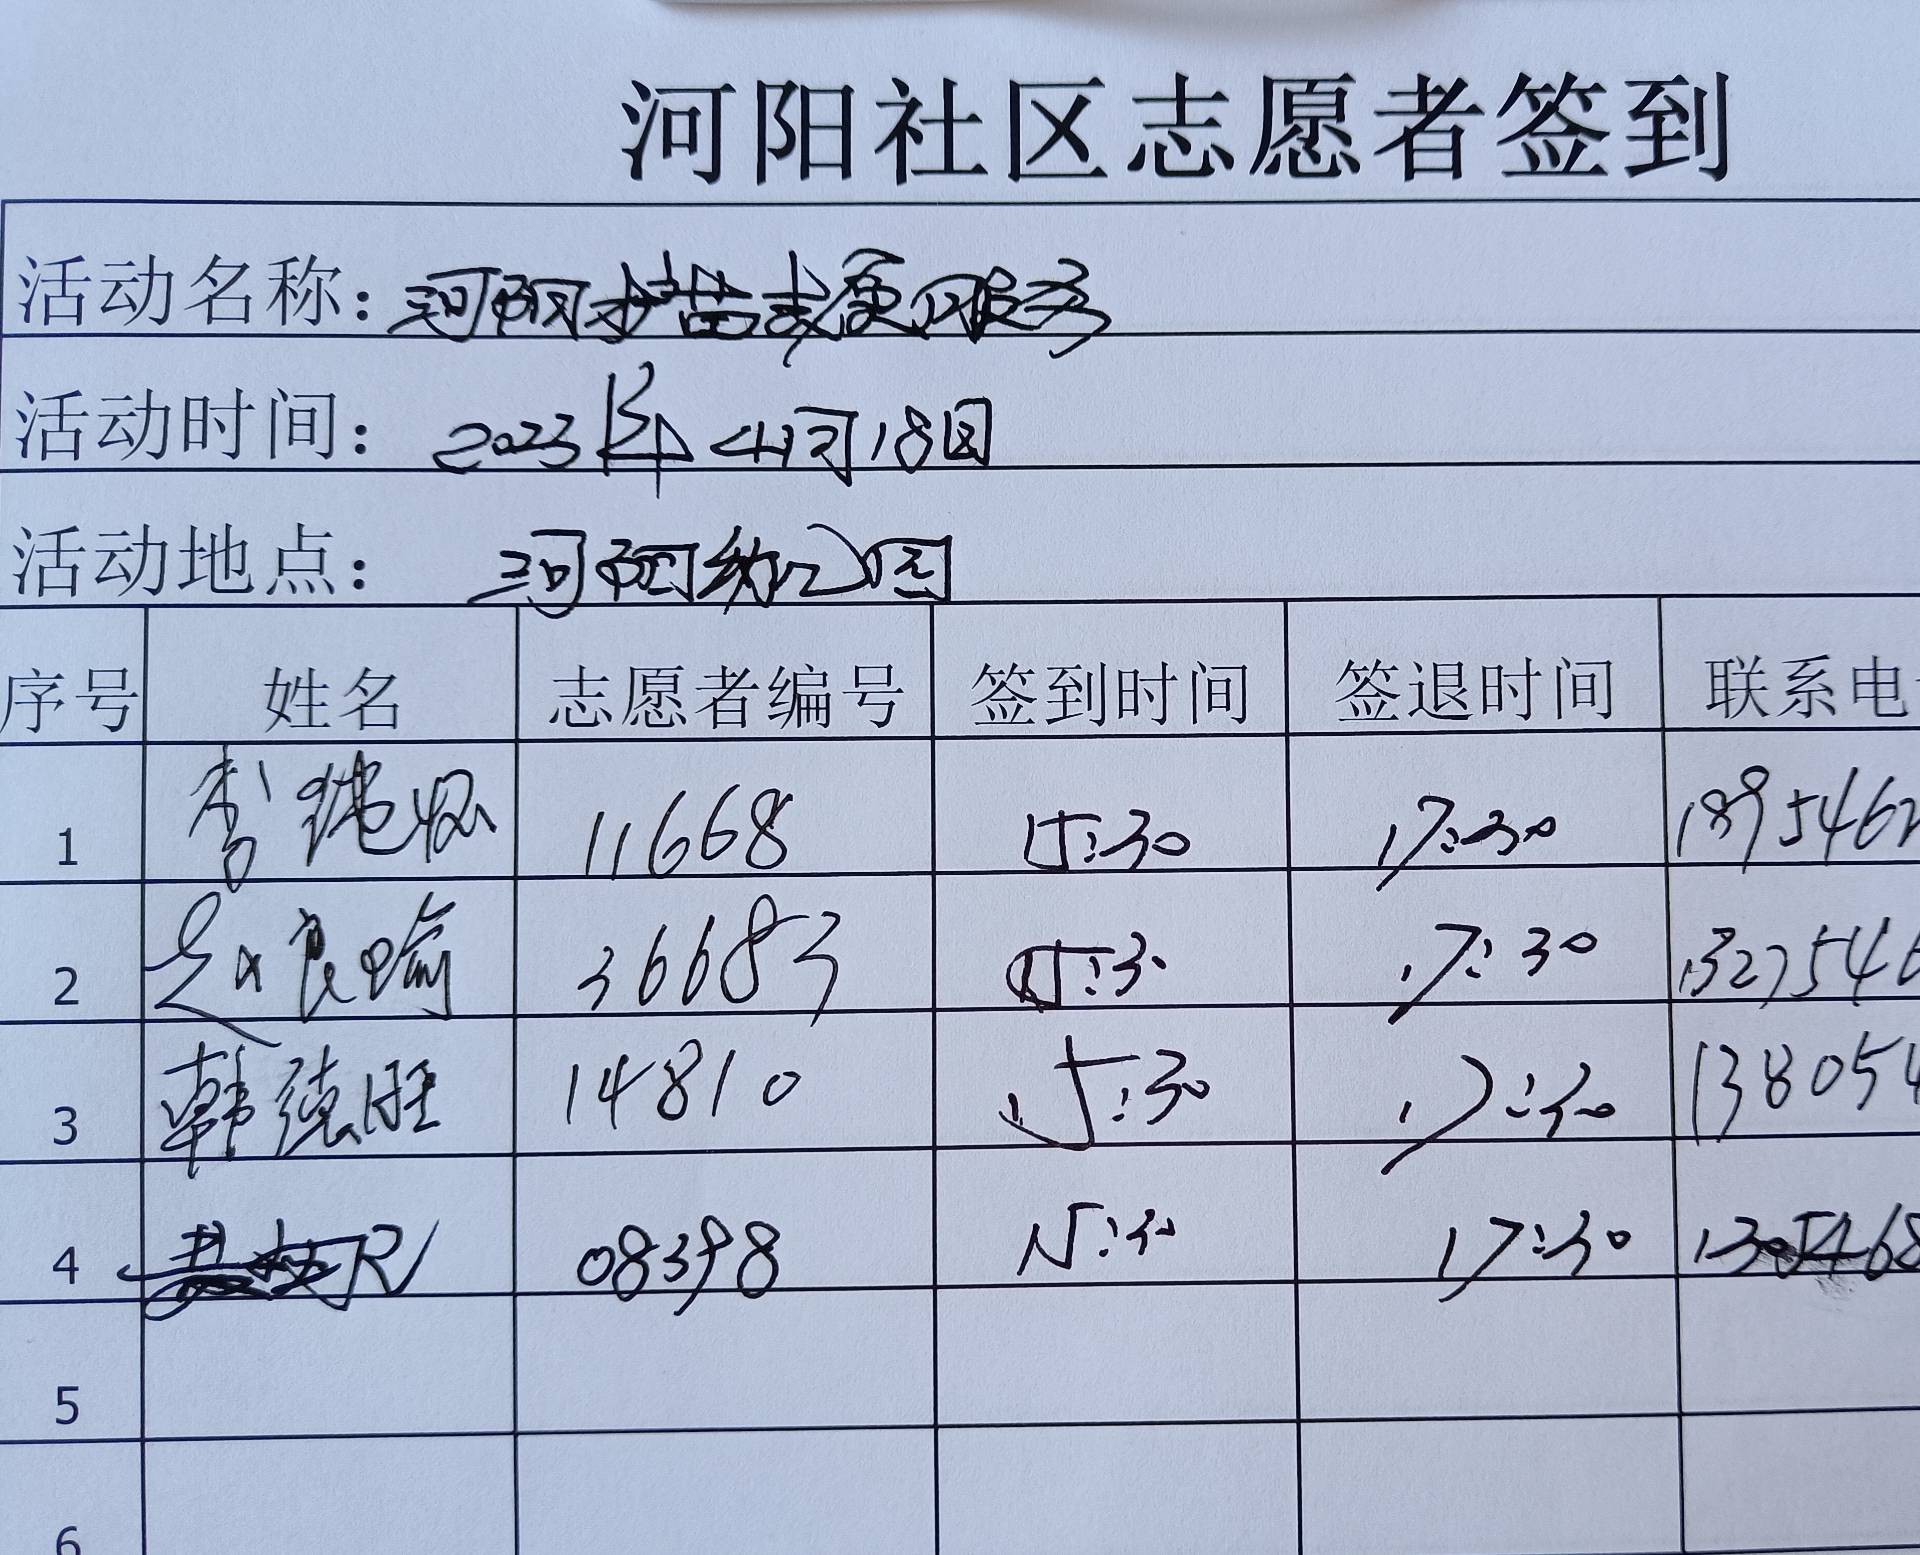 河阳社区志愿者签到
活动名称：河阳护苗志愿服务
活动时间：2023年4月18日
活动地点：河阳幼儿园
序号 姓名 志愿者编号 签到时间 签退时间 联系电
1 李 11668 15:30 17:30 1895462
2 赵良喻 36683 15:30 17:30 1327546
3 韩德旺 14810 15:30 17:30 138054
4 08398 15:30 17:30
5
6